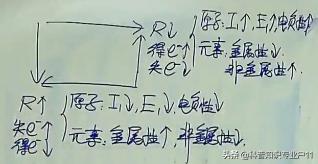 R↓ { 原子：I↑，E↑，电负性↑
得e⁻↑
失e⁻↓ 元素：金属性↓
非金属性↑
R↑ { 原子：I↓，E↓，电负性↓
失e⁻↑ 元素：金属性↑，非金属性↓
得e⁻↓
头条 @科普知识专业户11